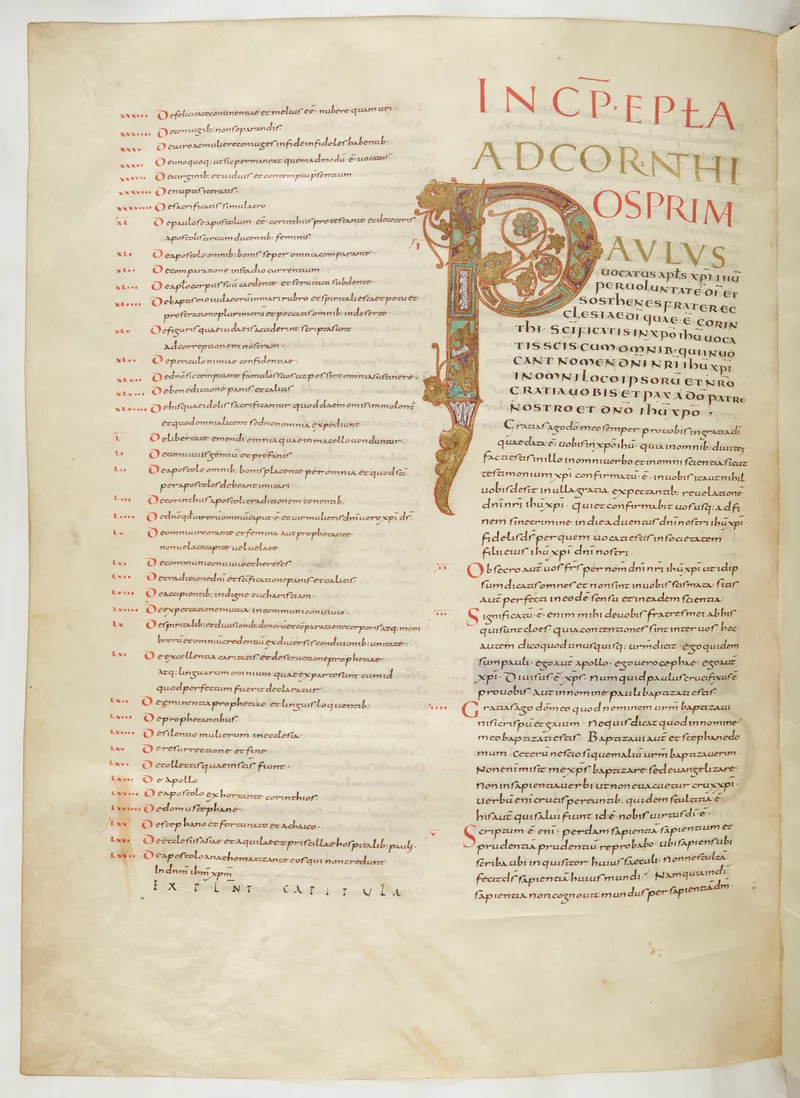 xxxiii De felicitate continentiae et melius eē nubere quam uri
xxxiiii De coniugib; non separandis
xxxv De uiro ac muliere coniuges infideles habentib;
xxxvi De unoquoq; ut sic permaneat quemadmodū ē uocatus
De uirginib; et uiduis et contemptu praesentium
De nuptis iteratis
De sacrificatis simulacro
xl De paulo se apostolum eē corinthiis protestante et de ceteris
apostolis circumducentib; feminis
xli De apostolo omnib; bonis se per omnia comparante
xlii De comparatione in stadio currentium
xliii De apostolo corpus suū caedente et seruituti subdente
xliiii De baptismo iudaeorū in mari rubro et spiritali esca et potu et
prostratione plurimorū et peccatis omnib; in deserto
xlv De figuris quae iudaeis acciderint scriptas sunt
ad correptionem nostram
xlvi De periculo nimiae confidentiae
xlvii De dnō sic temptante famulos suos ut possint omnia sustinere
De benedictione panis et calicis
xlviiii De his quae idolis sacrificantur quod daemoniis inmolent
et quod omnia licent sed non omnia expediunt
l De libertate emendi omnia quae in macello uenduntur
li De conuiuiis gentiū et profanis
lii De apostolo omnib; bonis placente per omnia et quod scī
per apostolos debeant imitari
liii De corinthiis apostoli traditionem tenentib;
liiii De dnō quod uirorū omniū caput ē et uir mulieris dnī uero xpī dr̄
lv De omni uiro orante et femina aut prophetante
non uelato capite uel uelato
lvi De communi conuiuio et hereses
lvii De traditione dnī et scificatione panis et calicis
lviii De accipientib; indigne eucharistiam
lviiii De expectatione mutua in communi conuiuio
lx De spiritalib; et diuisionib; donorū et cōparatione corporis atq; mem
brorū et omniū credentiū ex diuersis conditionib; unitate
lxi De excellentia caritatis et destructione prophetiae
atq; linguarum omnium quae ex parte sunt cum id
quod perfectum fuerit declaratur
lxii De eminentia prophetiae et linguis loquentib;
lxiii De prophetantibus
lxiiii De silentio mulierum in ecclesia
lxv De resurrectione et fine
lxvi De collectis quae in scīs fiunt
lxvii De Apollo
lxviii De apostolo exhortante corinthios
lxviiii De domu stephanae
lxx De stephano et fortunato et achaico
lxxi De ecclesiis asiae et aquilae et priscillae hospitalib; pauli
lxxii De apostolo anathematizante eos qui non credunt
In dnm̄ ihm̄ xpm̄
EXPLNT CAPITULA
INCP̄ · EPŁA
AD CORINTHI
OS PRIM
PAVLVS
UOCATUS APTS XPI IHU
PER UOLUNTATĒ DĪ ET
SOSTHENES FRATER EC
CLESIAE DĪ QUAE Ē CORIN
THI · SCĪFICATIS IN XPŌ IHŪ UOCA
TIS SCĪS CUM OMNIB; QUI INUO
CANT NOMEN DNĪ NRĪ IHŪ XPĪ
IN OMNI LOCO IPSORŪ ET NRŌ
GRATIA UOBIS ET PAX A DŌ PATRE
NOSTRO ET DNŌ IHŪ XPŌ
Gratias ago dō meo semper pro uobis in gratia dī
quae data ē uobis in xpō ihū · quia in omnib; diuites
facti estis in illo in omni uerbo et in omni scientia sicut
testimonium xpī confirmatū ē in uobis ita ut nihil
uobis desit in ulla gratia expectantib; reuelationē
dnī nrī ihū xpī · qui et confirmabit uos usq; ad fi
nem sine crimine in die aduentus dnī nostri ihū xpī
fidelis ds̄ per quem uocati estis in societatem
filii eius ihū xpī dnī nostri
ii Obsecro aut̄ uos frs̄ per nom̄ dnī nrī ihū xpī ut id ip
sum dicatis omnes et non sint in uobis scismata · sitis
aut̄ perfecti in eodē sensu et in eadem scientia
iii Significatū ē enim mihi de uobis fratres mei ab his
qui sunt cloes quia contentiones sint inter uos · hoc
autem dico quod unusquisq; urm̄ dicit · ego quidem
sum pauli · ego aut̄ apollo · ego uero cephae · ego aut̄
xpī · Diuisus ē xps̄ · Numquid paulus crucifixus ē
pro uobis Aut in nomine pauli baptizati estis
iiii Gratias ago dō meo quod neminem urm̄ baptizaui
nisi crispū et gaium · Ne quis dicat quod in nomine
meo baptizati estis · Baptizaui aut̄ et stephanae do
mum · Ceterū nescio si quem aliū urm̄ baptizauerim
Non enī misit me xps̄ baptizare sed euangelizare
non in sapientia uerbi ut non euacuetur crux xpī
uerbū enī crucis pereuntib; quidem stultitia ē
his aut̄ qui salui fiunt id ē nobis uirtus dī ē
v Scriptum ē enī · perdam sapientiā sapientium et
prudentiā prudentiū reprobabo · ubi sapiens ubi
scriba ubi inquisitor huius saeculi · Nonne stultā
fecit ds̄ sapientiā huius mundi · Nam quia in dī
sapientia non cognouit mundus per sapientiā dm̄